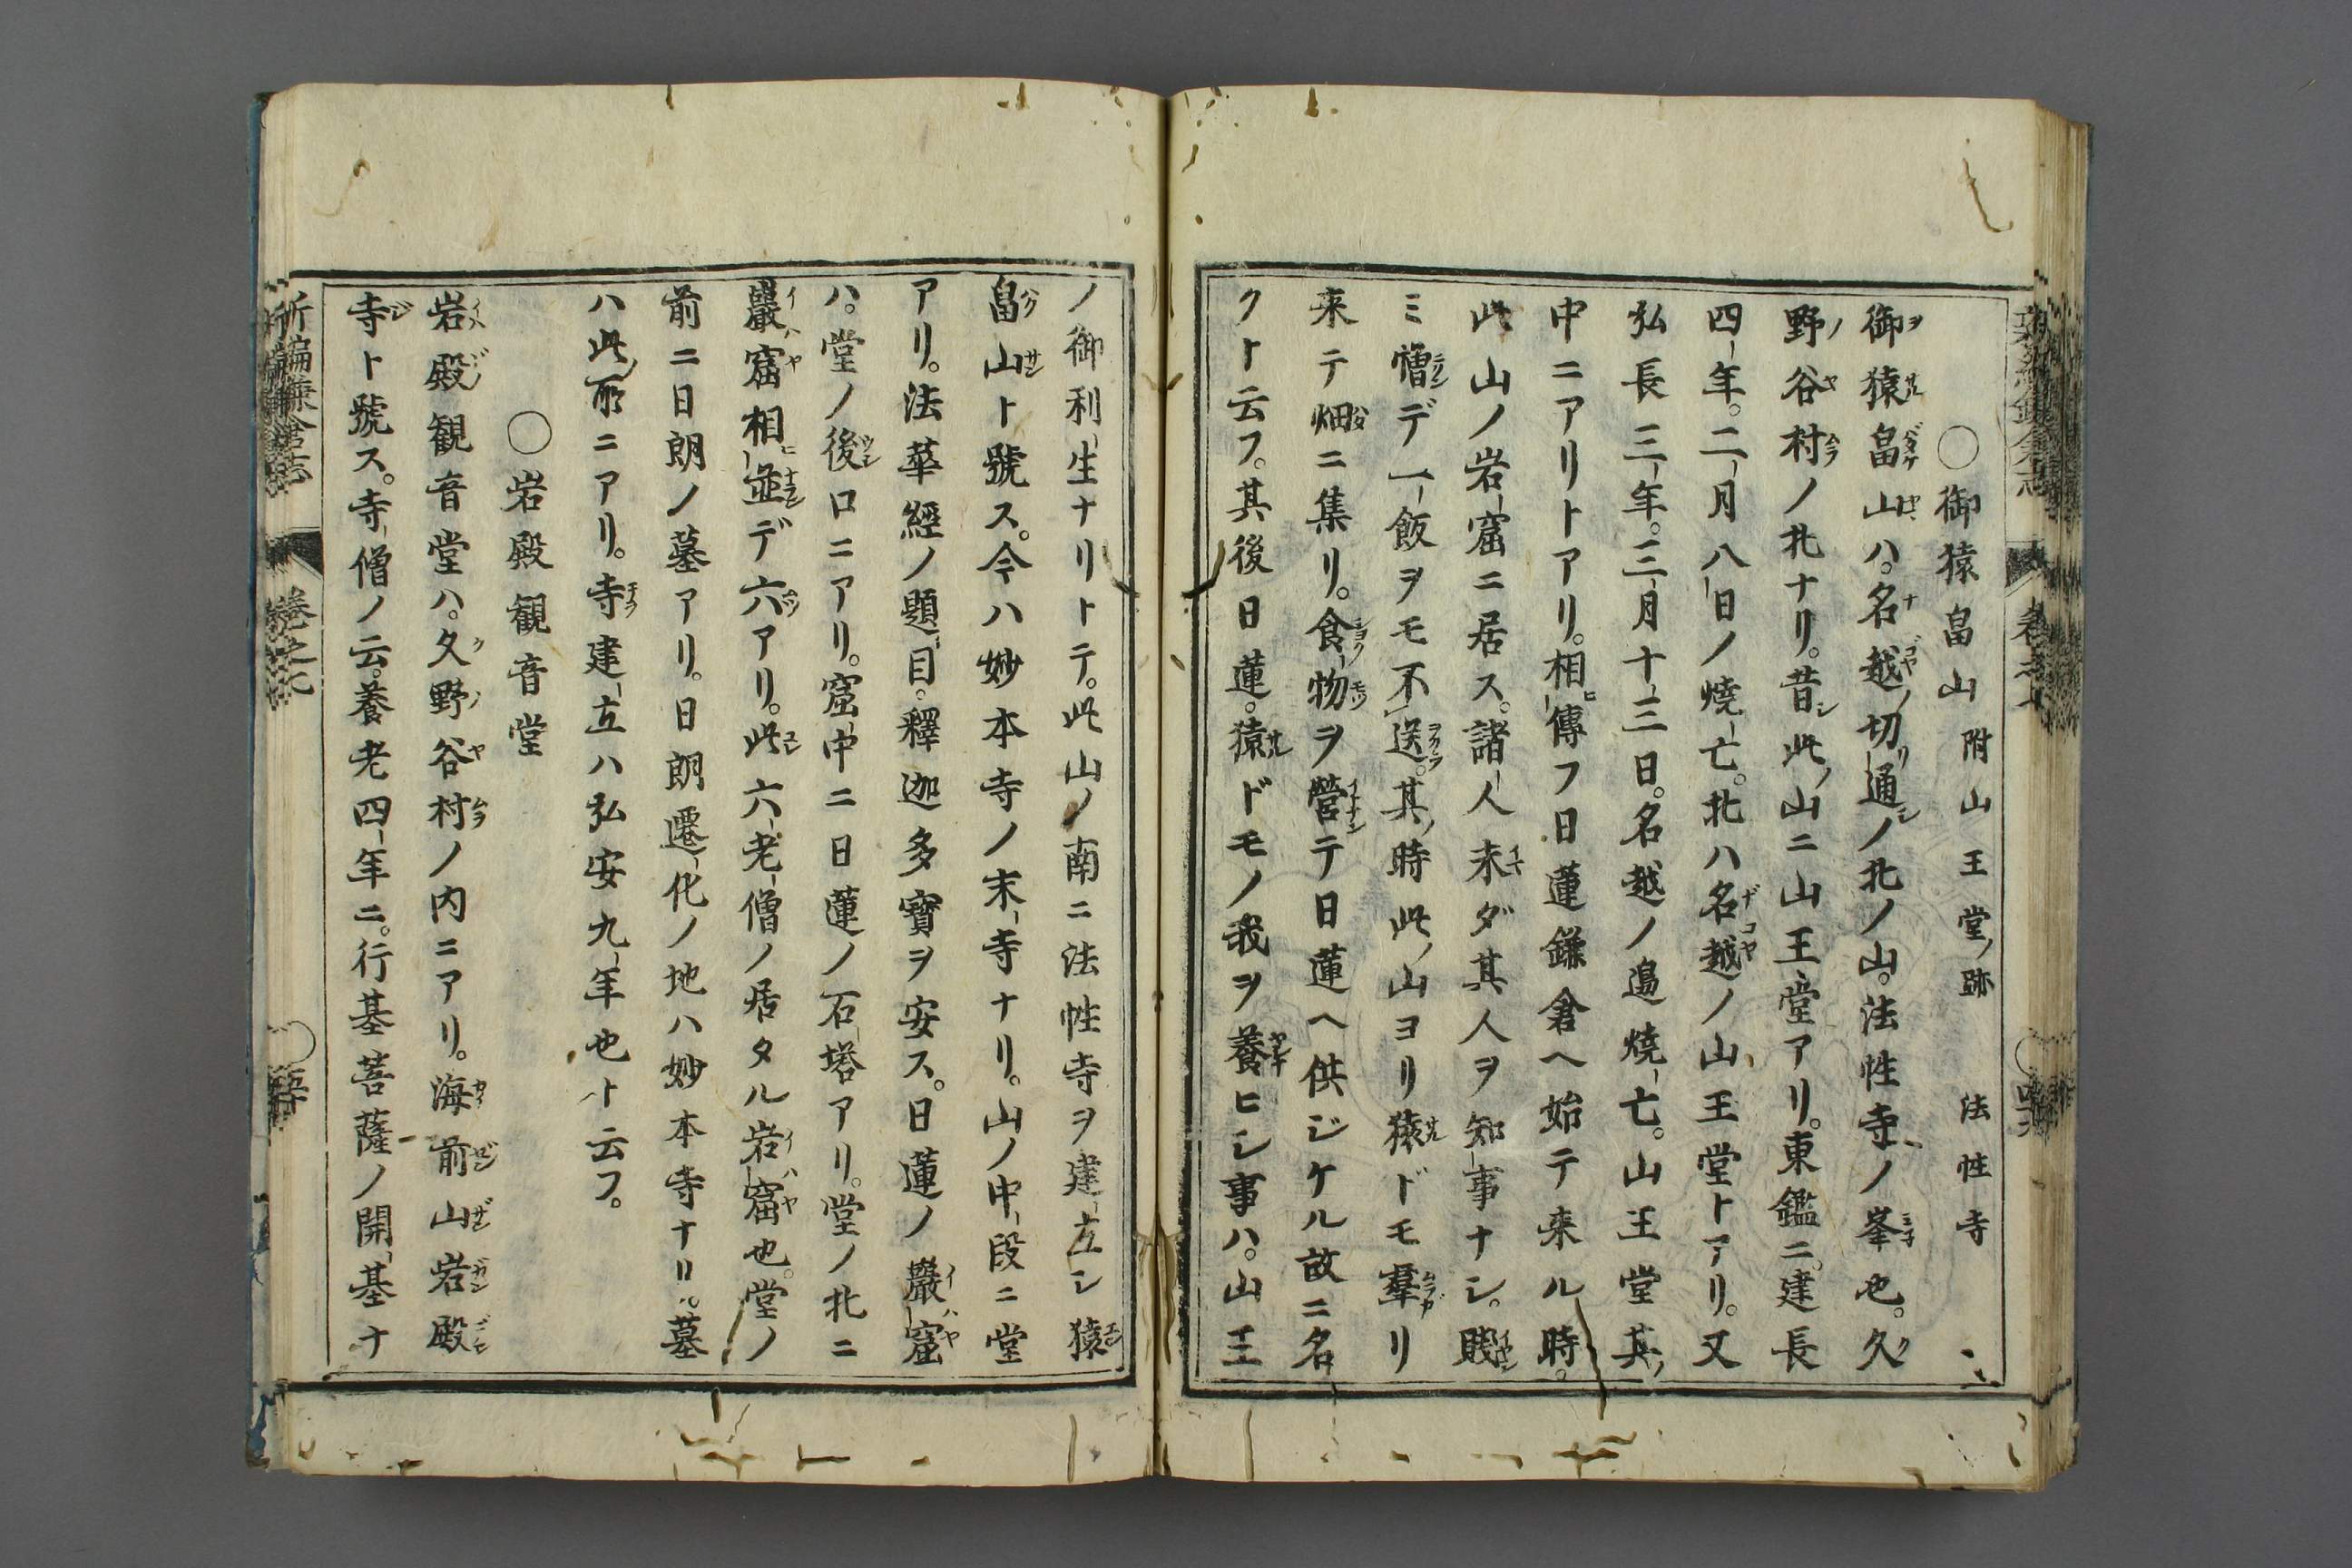 ○御猿畠山 附山王堂ノ跡 法性寺
御猿畠山ハ。名越ノ切通ノ北ノ山。法性寺ノ峯也。久
野谷村ノ北ナリ。昔此ノ山ニ山王堂アリ。東鑑ニ。建長
四年。二月八日ノ燒亡。北ハ名越ノ山王堂トアリ。又
弘長三年。三月十三日。名越ノ邊燒亡。山王堂其ノ
中ニアリトアリ。相傳フ日蓮鎌倉ヘ始テ来ル時。
此山ノ岩窟ニ居ス。諸人未ダ其人ヲ知事ナシ。賤
ミ憎デ一飯ヲモ不送。其ノ時此ノ山ヨリ猿ドモ羣リ
来テ畑ニ集リ。食物ヲ營テ日蓮ヘ供ジケル故ニ名
クト云フ。其後日蓮。猿ドモノ我ヲ養ヒシ事ハ。山王
ノ御利生ナリトテ。此山ノ南ニ法性寺ヲ建立シ猿
畠山ト號ス。今ハ妙本寺ノ末寺ナリ。山ノ中段ニ堂
アリ。法華經ノ題目。釋迦多寶ヲ安ス。日蓮ノ巖窟
ハ。堂ノ後ロニアリ。窟中ニ日蓮ノ石塔アリ。堂ノ北ニ
巖窟相並デ六アリ。此六老僧ノ居タル岩窟也。堂ノ
前ニ日朗ノ墓アリ。日朗遷化ノ地ハ妙本寺ナリ。墓
ハ此所ニアリ。寺建立ハ弘安九年也ト云フ。
○岩殿観音堂
岩殿観音堂ハ。久野谷村ノ内ニアリ。海前山岩殿
寺ト號ス。寺僧ノ云。養老四年ニ。行基菩薩ノ開基ナ
新編鎌倉志 卷之七